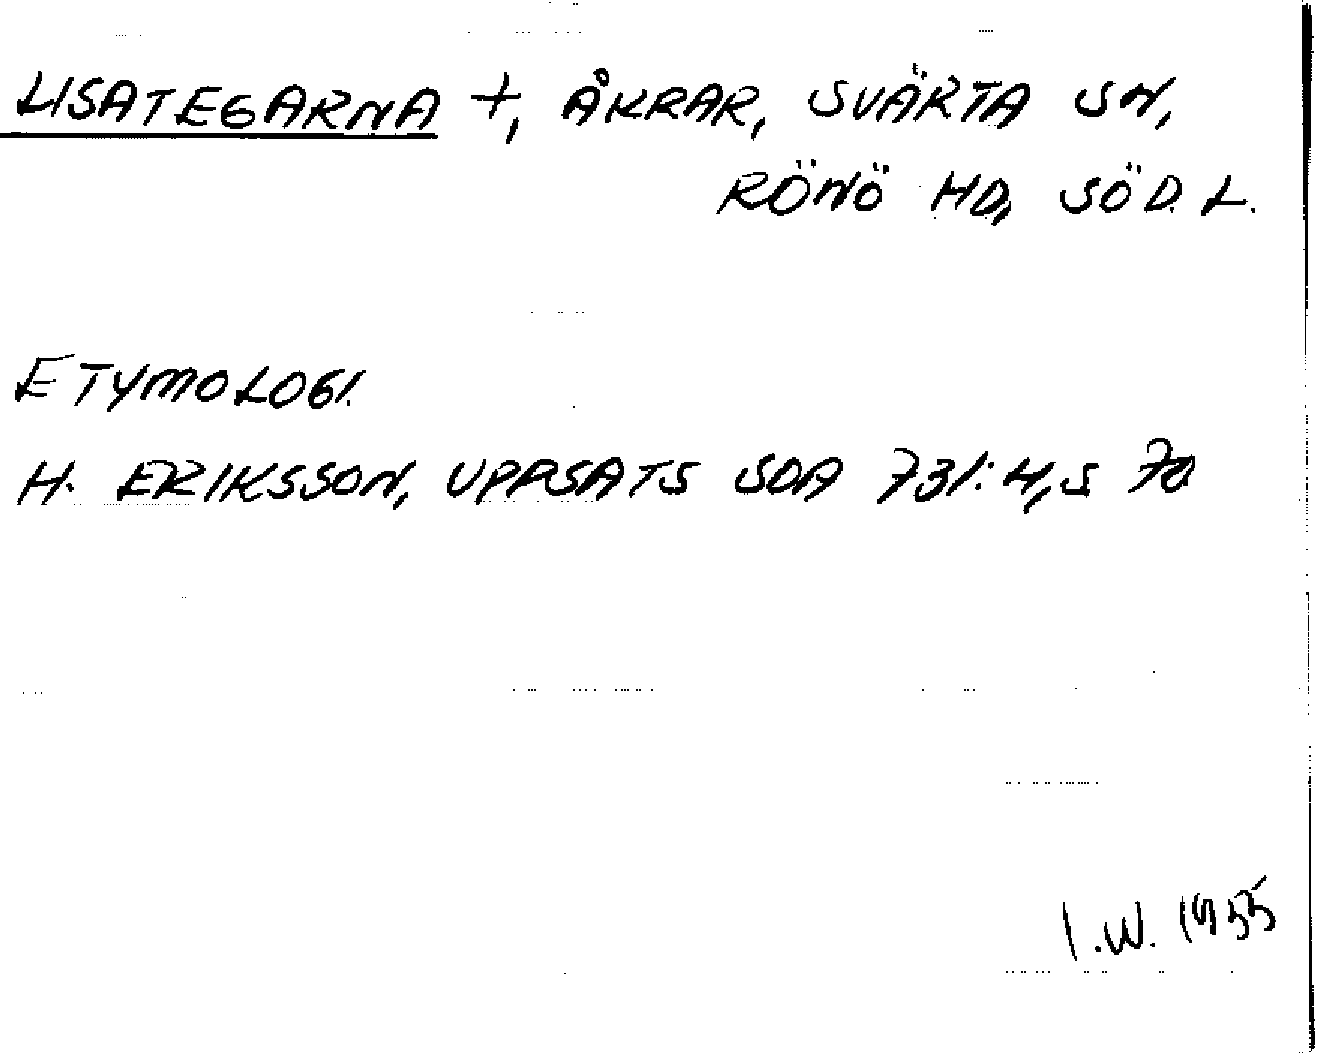 LISATEGARNA +, ÅKRAR, SVÄRTA SN,
RÖNÖ HD, SÖD. L.
ETYMOLOGI.
H. ERIKSSON, UPPSATS SOA 731:4, S 70
I.W. 1955